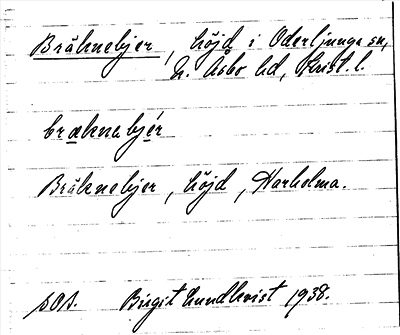 Bräknebjer, höjd i Oderljunga sn,
N. Åsbo hd, Krist. l.
bræknabjér
Bräknebjer, höjd, Harholma.
pOA. Birgit Lundkvist 1938.